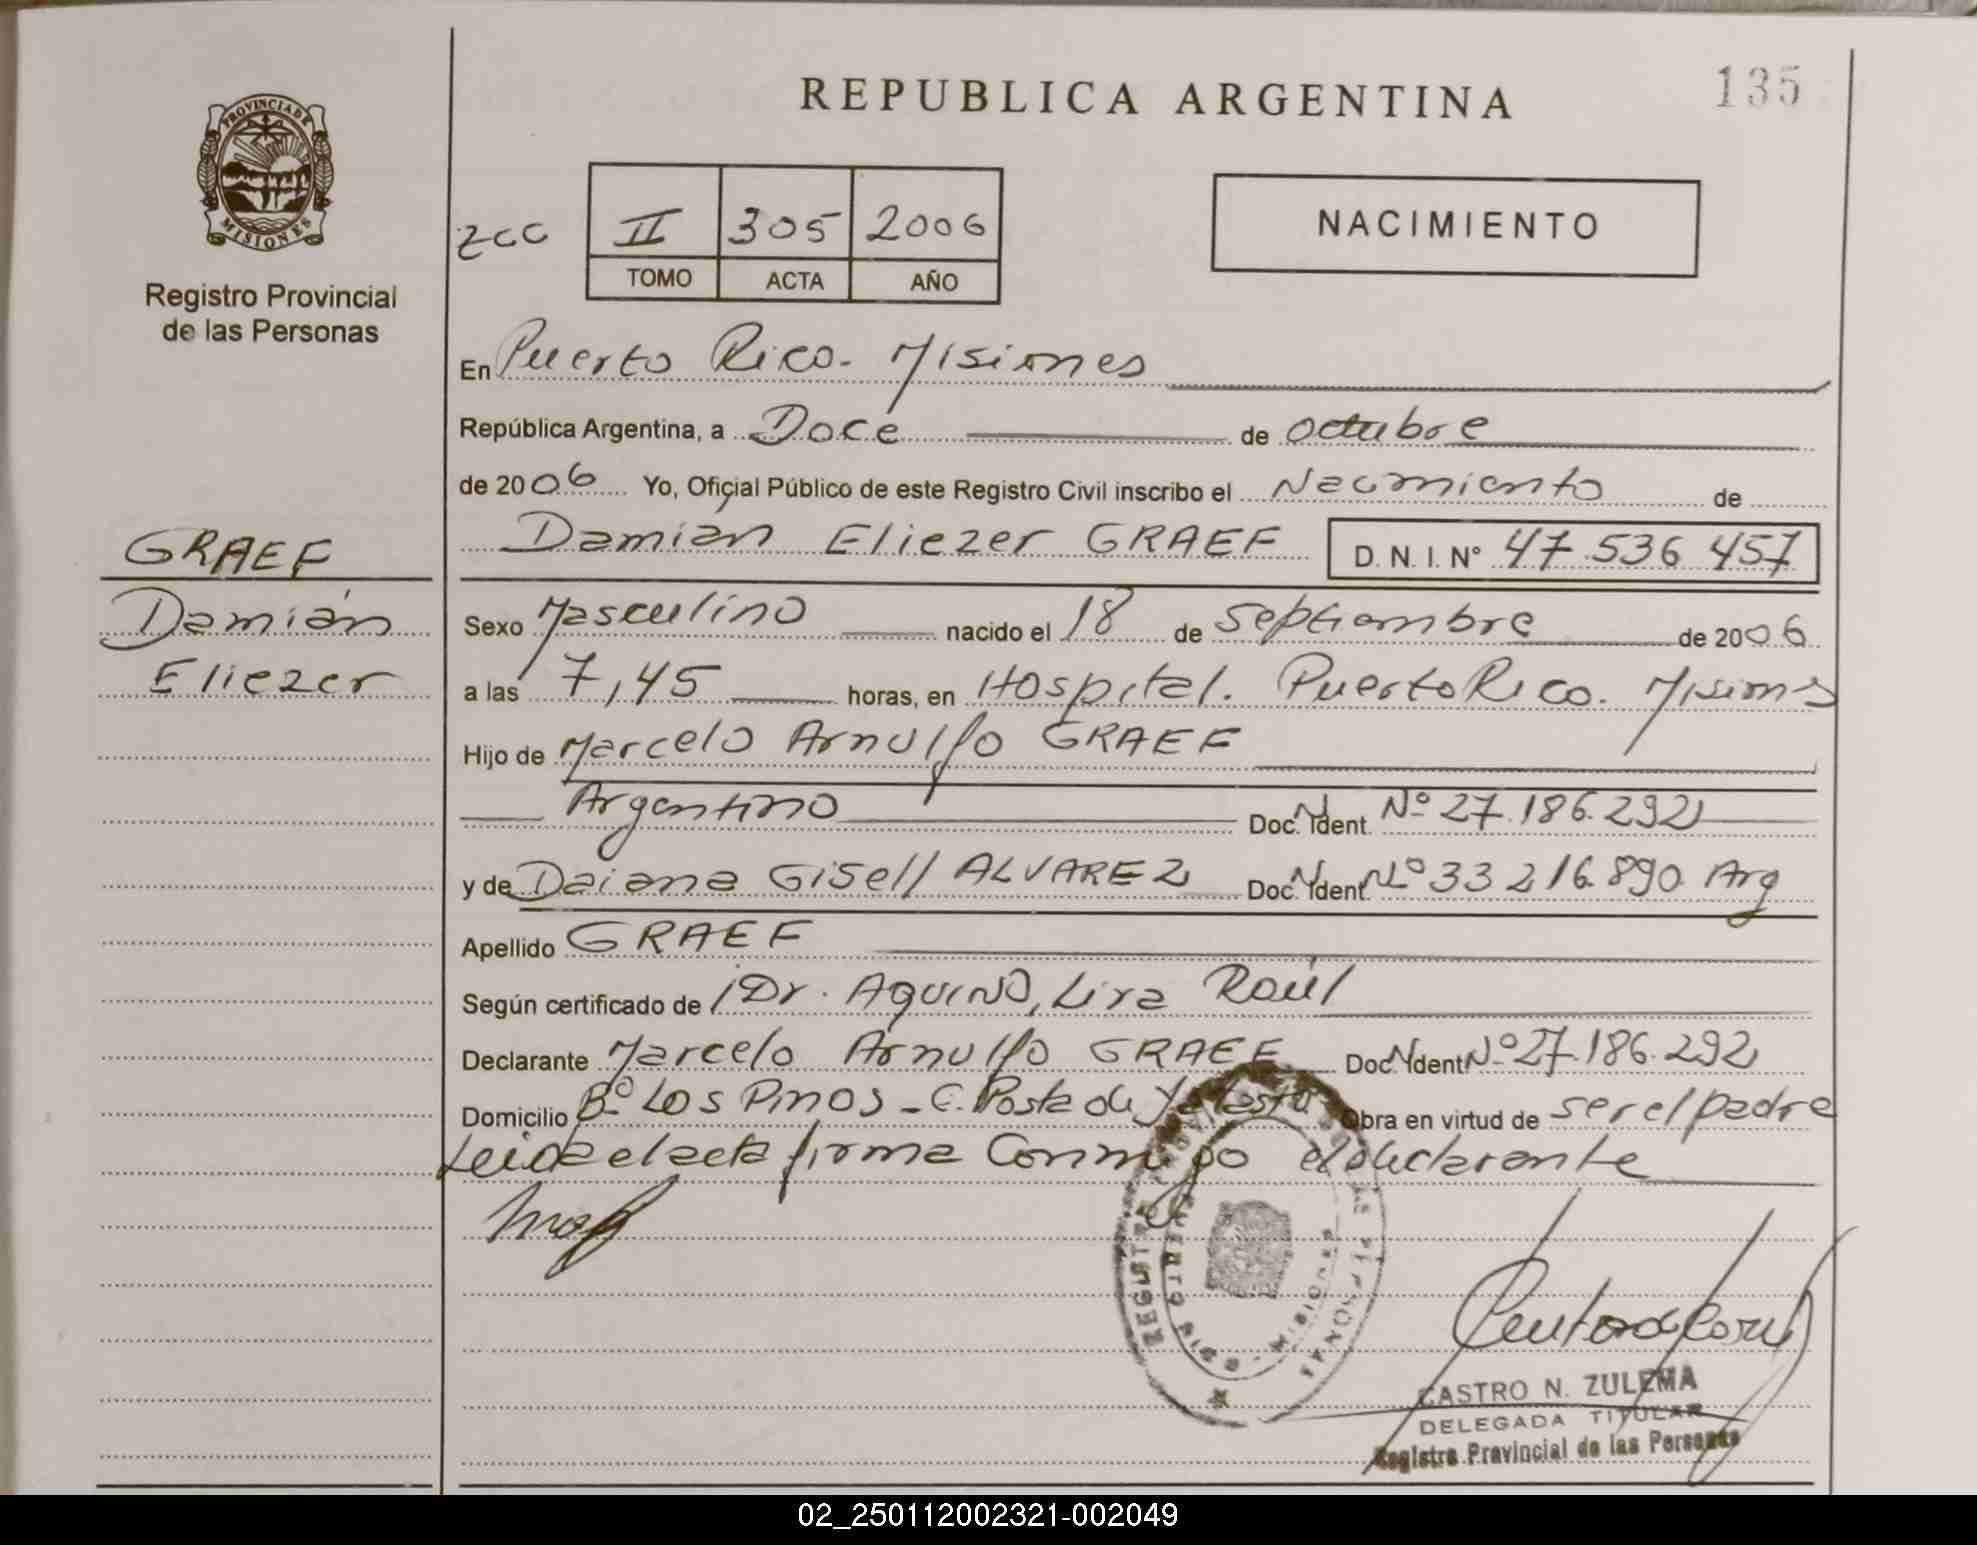 REPUBLICA ARGENTINA
135
PROVINCIA DE
MISIONES
Registro Provincial
de las Personas
zcc
II 305 2006
TOMO ACTA AÑO
NACIMIENTO
En Puerto Rico. Misiones
República Argentina, a Doce de octubre
de 2006 Yo, Oficial Público de este Registro Civil inscribo el Nacimiento de
Damián Eliezer GRAEF D. N. I. N° 47.536.457
GRAEF
Damián
Eliezer
Sexo Masculino nacido el 18 de Septiembre de 2006
a las 7,45 horas, en Hospital. Puerto Rico. Misiones
Hijo de Marcelo Arnulfo GRAEF
Argentino Doc. Ident. Nº 27.186.292
y de Daiana Gisell ALVAREZ Doc. Ident. Nº 33.216.890 Arg
Apellido GRAEF
Según certificado de Dr. Aquino, Lira Raúl
Declarante Marcelo Arnulfo GRAEF Doc. Ident. Nº 27.186.292
Domicilio Bº Los Pinos - C. Posta de Obra en virtud de ser el padre
Leida el acta firma Conmigo el declarante
REGISTRO PERSONAS
PUERTO RICO - MISIONES
CASTRO N. ZULEMA
DELEGADA TITULAR
Registro Provincial de las Personas
02_250112002321-002049